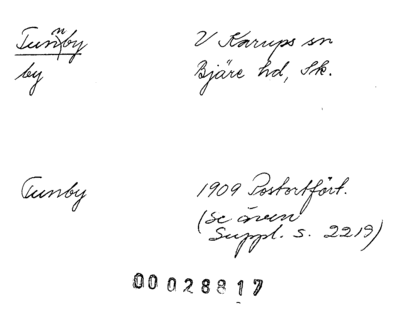 Tunnby V Karups sn
by Bjäre hd, Sk.
Tunby 1909 Postortfört.
(Se även
Suppl. s. 2219)
00028817